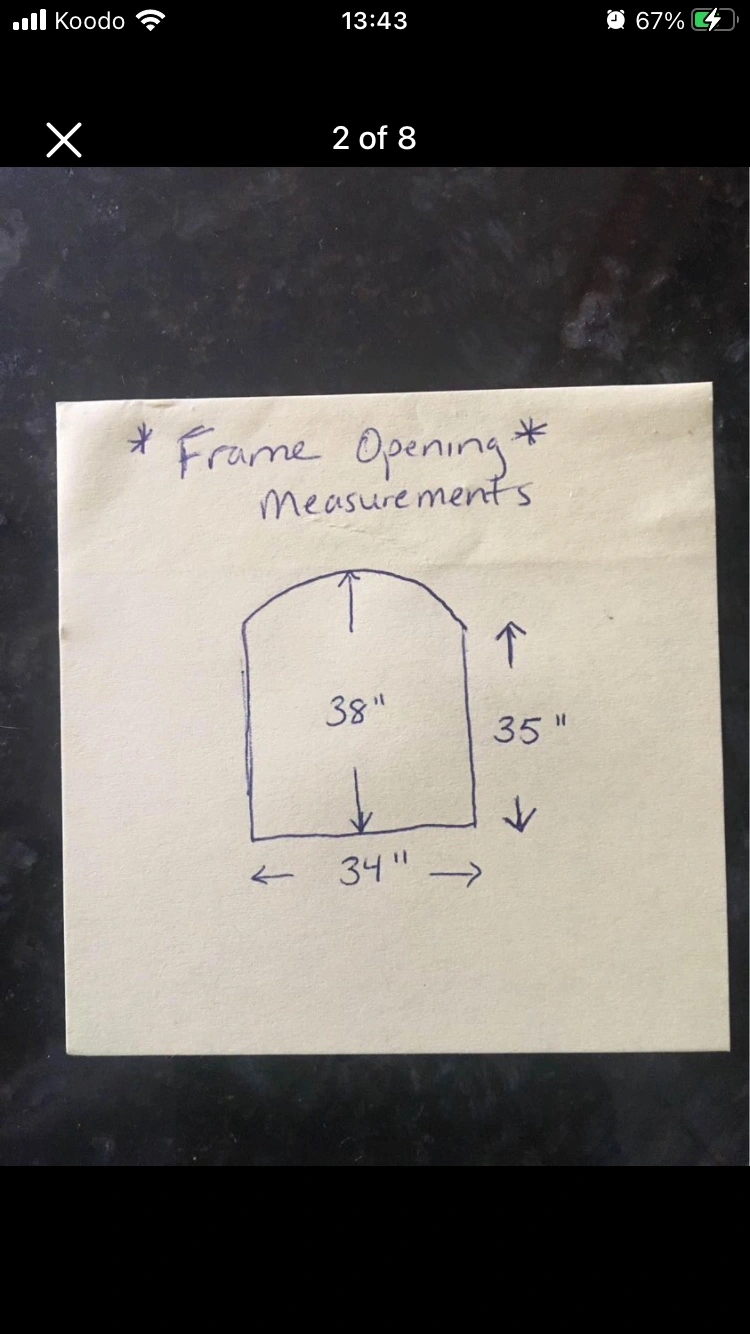 Koodo 13:43 67%
2 of 8
* Frame Opening *
Measurements
38"
35"
34"